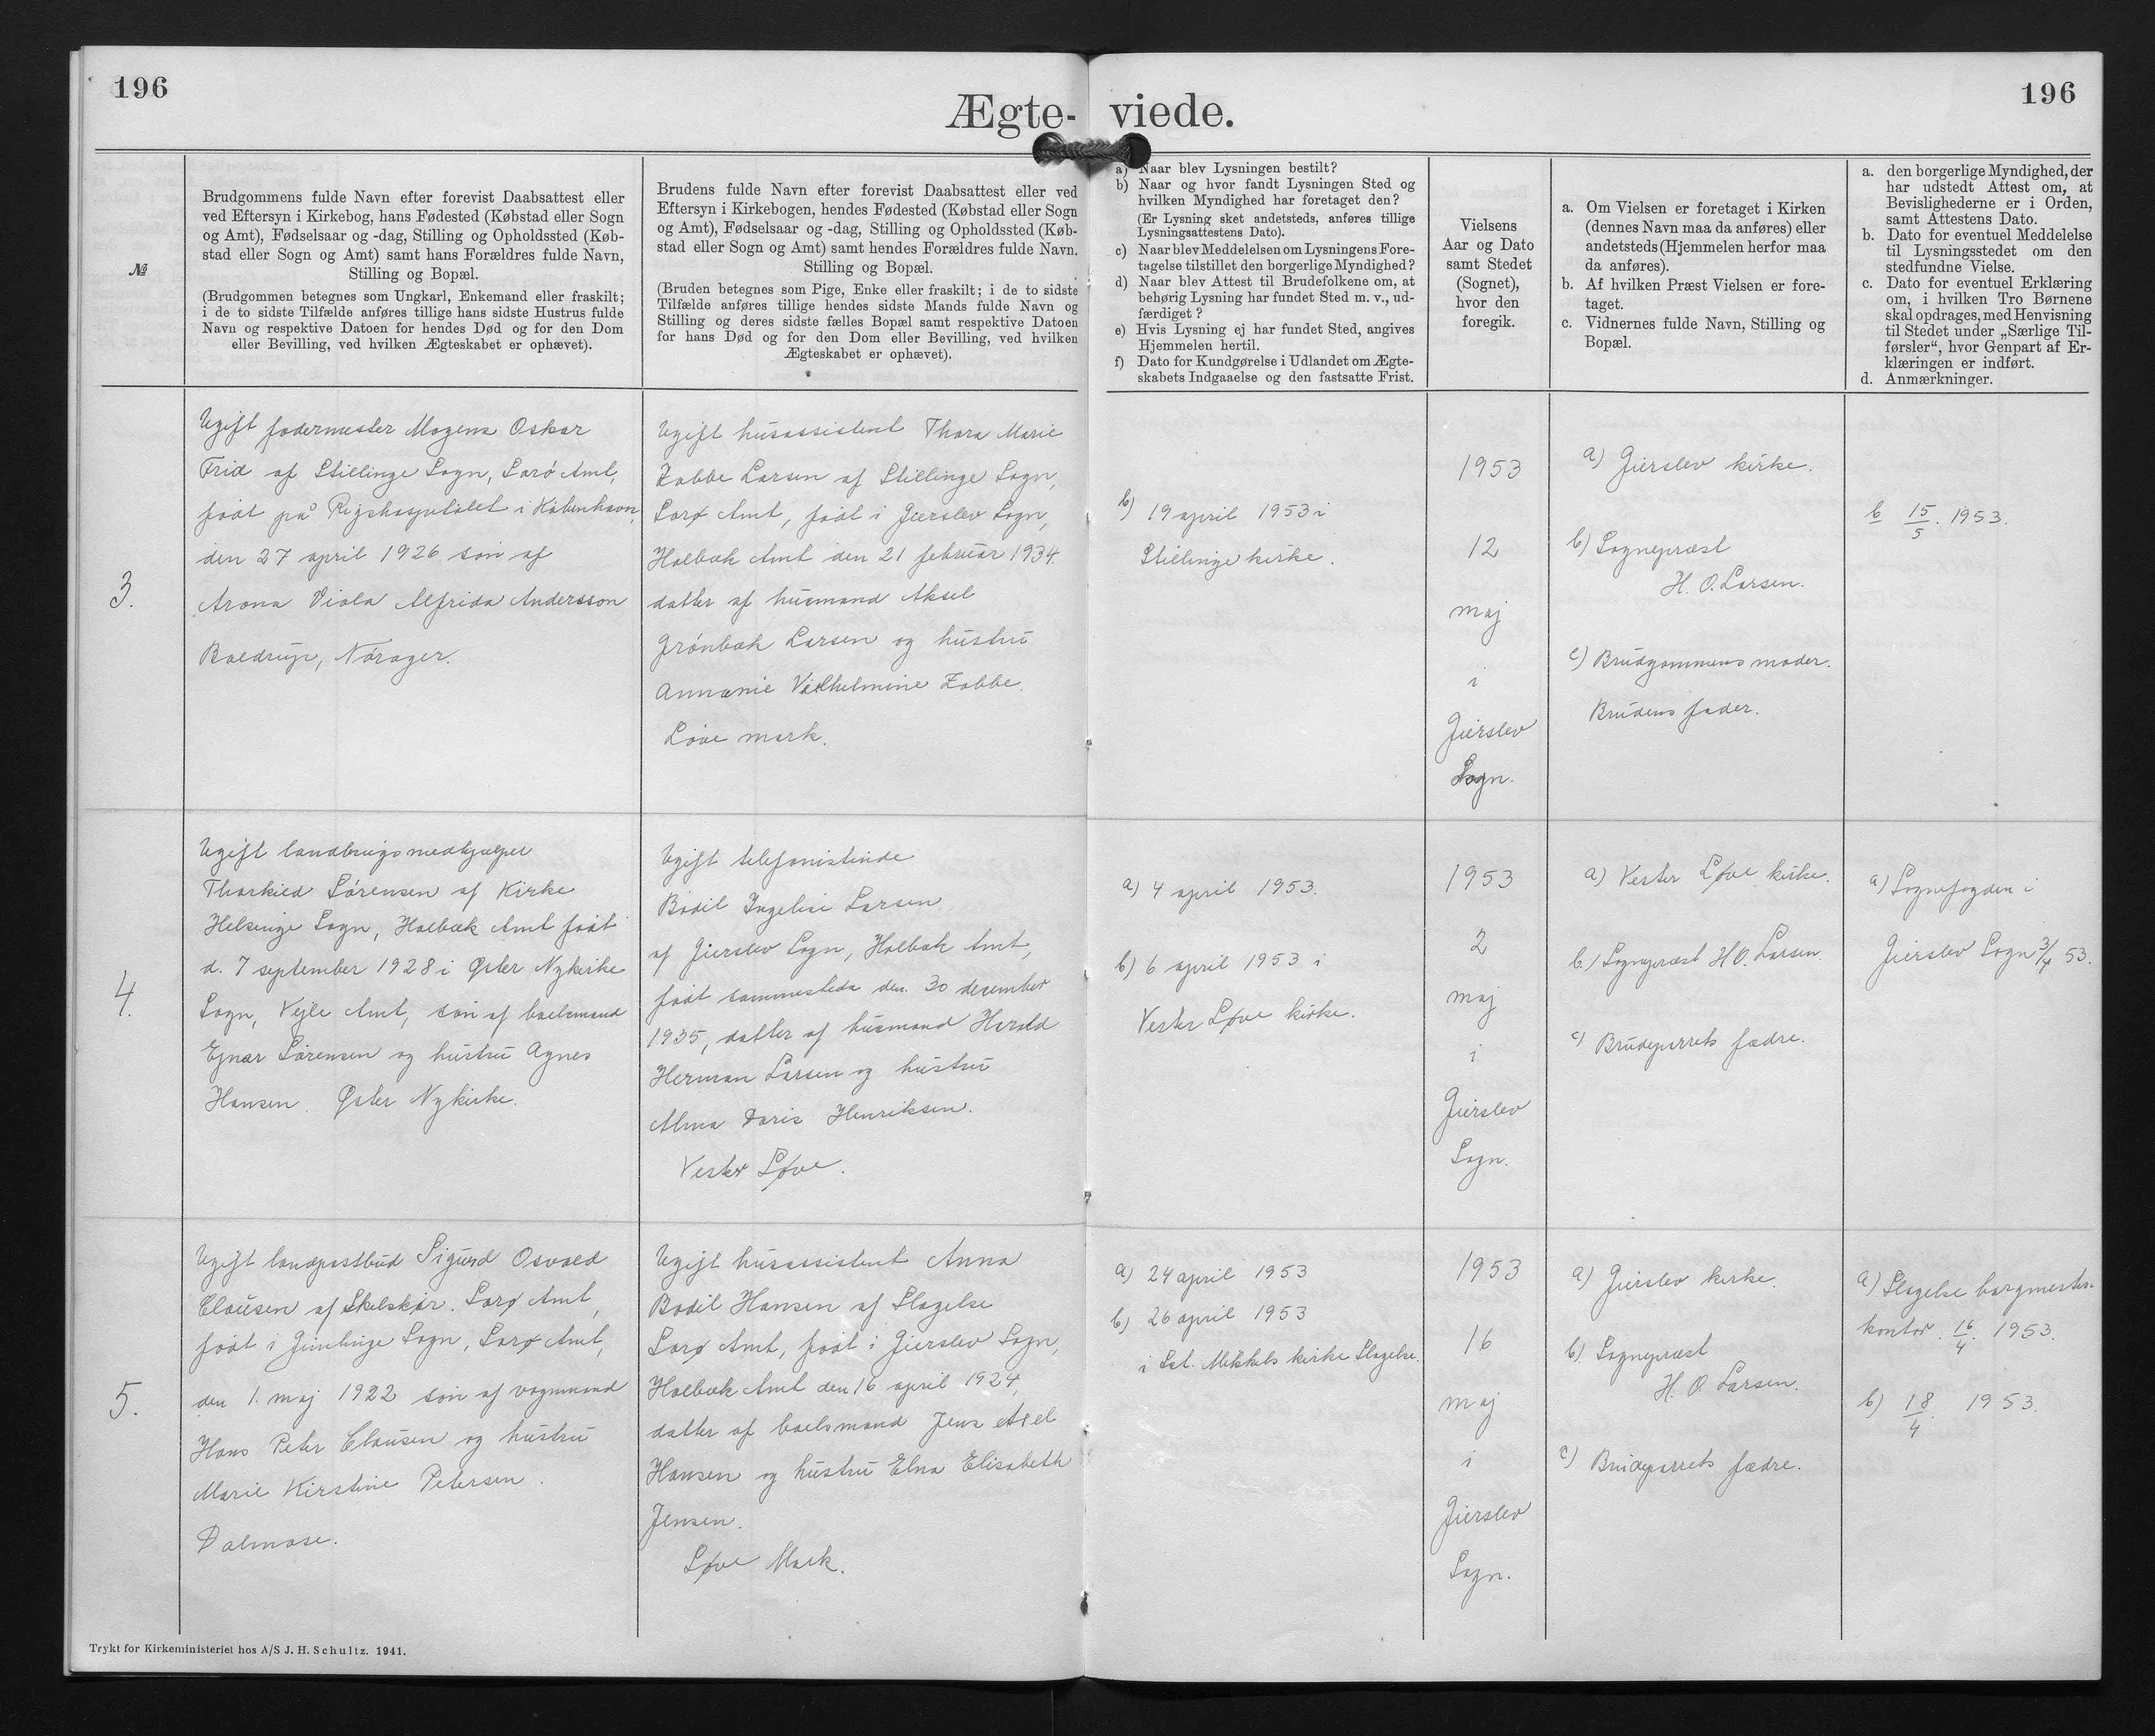 196
196
Ægte- viede.
№
Brudgommens fulde Navn efter forevist Daabsattest eller
ved Eftersyn i Kirkebog, hans Fødested (Købstad eller Sogn
og Amt), Fødselsaar og -dag, Stilling og Opholdssted (Køb-
stad eller Sogn og Amt) samt hans Forældres fulde Navn,
Stilling og Bopæl.
(Brudgommen betegnes som Ungkarl, Enkemand eller fraskilt;
i de to sidste Tilfælde anføres tillige hans sidste Hustrus fulde
Navn og respektive Datoen for hendes Død og for den Dom
eller Bevilling, ved hvilken Ægteskabet er ophævet).
Brudens fulde Navn efter forevist Daabsattest eller ved
Eftersyn i Kirkebogen, hendes Fødested (Købstad eller Sogn
og Amt), Fødselsaar og -dag, Stilling og Opholdssted (Køb-
stad eller Sogn og Amt) samt hendes Forældres fulde Navn.
Stilling og Bopæl.
(Bruden betegnes som Pige, Enke eller fraskilt; i de to sidste
Tilfælde anføres tillige hendes sidste Mands fulde Navn og
Stilling og deres sidste fælles Bopæl samt respektive Datoen
for hans Død og for den Dom eller Bevilling, ved hvilken
Ægteskabet er ophævet).
a) Naar blev Lysningen bestilt?
b) Naar og hvor fandt Lysningen Sted og
hvilken Myndighed har foretaget den?
(Er Lysning sket andetsteds, anføres tillige
Lysningsattestens Dato).
c) Naar blev Meddelelsen om Lysningens Fore-
tagelse tilstillet den borgerlige Myndighed?
d) Naar blev Attest til Brudefolkene om, at
behørig Lysning har fundet Sted m. v., ud-
færdiget?
e) Hvis Lysning ej har fundet Sted, angives
Hjemmelen hertil.
f) Dato for Kundgørelse i Udlandet om Ægte-
skabets Indgaaelse og den fastsatte Frist.
Vielsens
Aar og Dato
samt Stedet
(Sognet),
hvor den
foregik.
a. Om Vielsen er foretaget i Kirken
(dennes Navn maa da anføres) eller
andetsteds (Hjemmelen herfor maa
da anføres).
b. Af hvilken Præst Vielsen er fore-
taget.
c. Vidnernes fulde Navn, Stilling og
Bopæl.
a. den borgerlige Myndighed, der
har udstedt Attest om, at
Bevislighederne er i Orden,
samt Attestens Dato.
b. Dato for eventuel Meddelelse
til Lysningsstedet om den
stedfundne Vielse.
c. Dato for eventuel Erklæring
om, i hvilken Tro Børnene
skal opdrages, med Henvisning
til Stedet under „Særlige Til-
førsler“, hvor Genpart af Er-
klæringen er indført.
d. Anmærkninger.
3.
Ugift fodermester Mogens Oskar
Frid af Stillinge Sogn, Sorø Amt,
født på Rigshospitalet i København,
den 27 april 1926 søn af
Arona Viola Alfrida Andersson
Boldrup, Nørager.
Ugift husassistent Thora Marie
Zabbe Larsen af Stillinge Sogn,
Sorø Amt, født i Gierslev Sogn,
Holbæk Amt den 21 februar 1934.
datter af husmand Aksel
Grönbæk Larsen og hustru
Annanie Vielhelmine Zobbe.
Løve mark.
b) 19 april 1953 i
Stillinge kirke.
1953
12
maj
i
Gierslev
Sogn.
a) Gierslev kirke.
b) Sognepræst
H. O. Larsen.
c) Brudgommens moder.
Brudens fader.
b 15/5. 1953.
4.
Ugift landbrugsmedhjælper
Thorkild Sørensen af Kirke
Helsinge Sogn, Holbæk Amt født
d. 7 september 1928 i Øster Nykirke
Sogn, Vejle Amt, søn af boelsmand
Ejnar Sørensen og hustru Agnes
Hansen. Øster Nykirke.
Ugift telefonistinde
Bodil Ingelise Larsen
af Gierslev Sogn, Holbæk Amt,
født sammesteds den 30 december
1935, datter af husmand Harald
Herman Larsen og hustru
Alma Doris Henriksen.
Vester Løve.
a) 4 april 1953.
b) 6 april 1953 i
Vester Løve kirke.
1953
2
maj
i
Gierslev
Sogn.
a) Vester Løve kirke.
b.) Sognepræst H O. Larsen.
c) Brudeparrets fædre.
a) Sognefogden i
Gierslev Sogn 3/4 53.
5.
Ugift landpostbud Sigurd Osvald
Clausen af Skelskør. Sorø Amt,
født i Gimlinge Sogn, Sorø Amt,
den 1. maj 1922 søn af vognmand
Hans Peter Clausen og hustru
Marie Kirstine Petersen.
Dalmose.
Ugift husassistent Anna
Bodil Hansen af Slagelse
Sorø Amt, født i Gierslev Sogn,
Holbæk Amt den 16 april 1924,
datter af boelsmand Jens Axel
Hansen og hustru Elna Elisabeth
Jensen.
Løve Mark.
a) 24 april 1953
b) 26 april 1953
i Sct. Mikkels kirke Slagelse.
1953
16
maj
i
Gierslev
Sogn.
a) Gierslev kirke.
b). Sognepræst
H. O. Larsen.
c) Brudeparrets fædre.
a) Slagelse borgmester-
kontor. 16/4. 1953.
b) 18/4. 1953.
Trykt for Kirkeministeriet hos A/S J. H. Schultz. 1941.